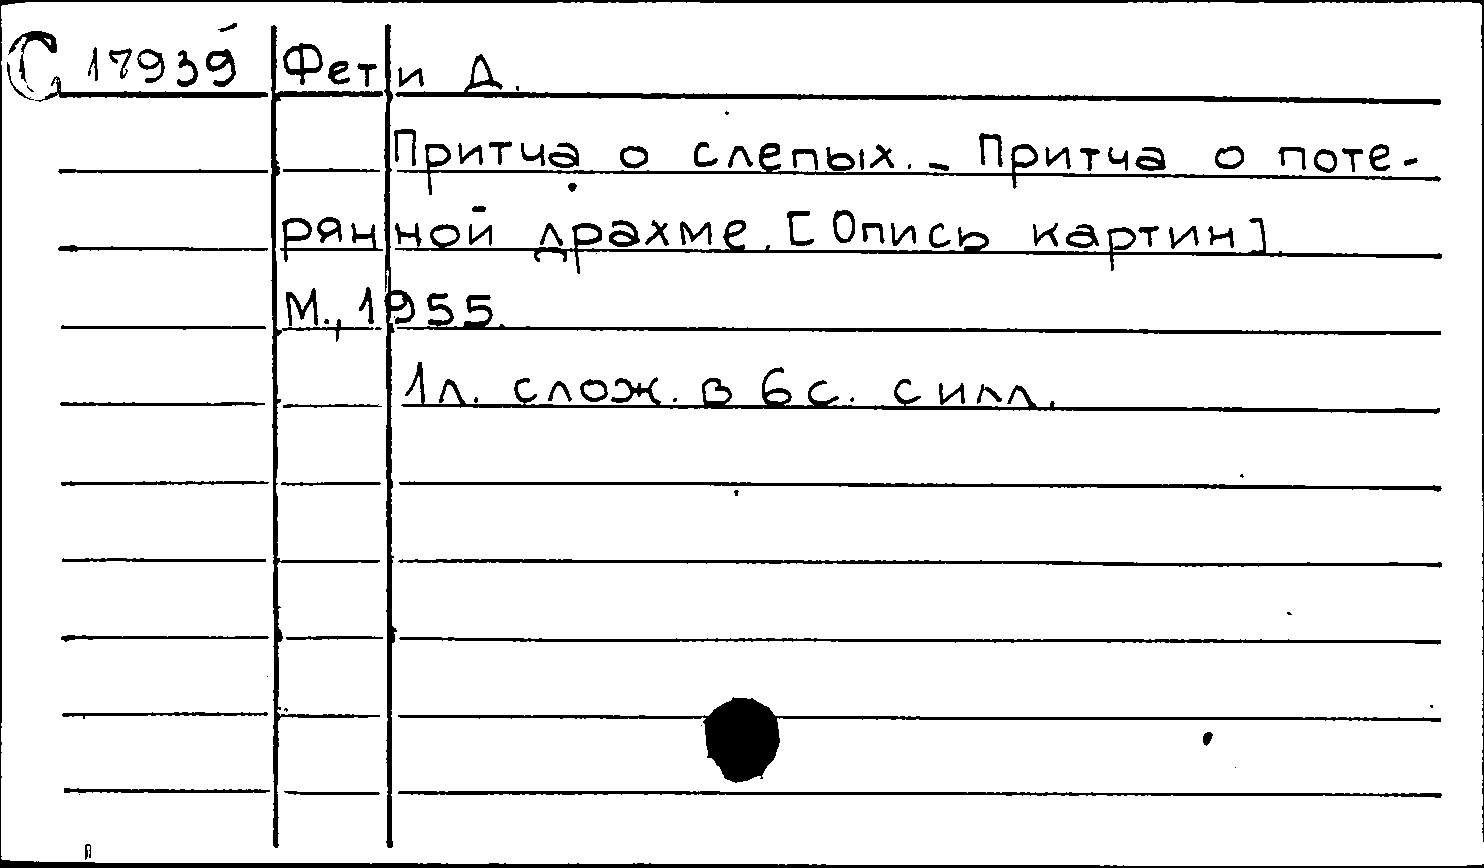 С 17939 Фети Д.
Притча о слепых. - Притча о поте-
рянной драхме. [Опись картин]
М., 1955.
1л. слож. в 6с. с илл.